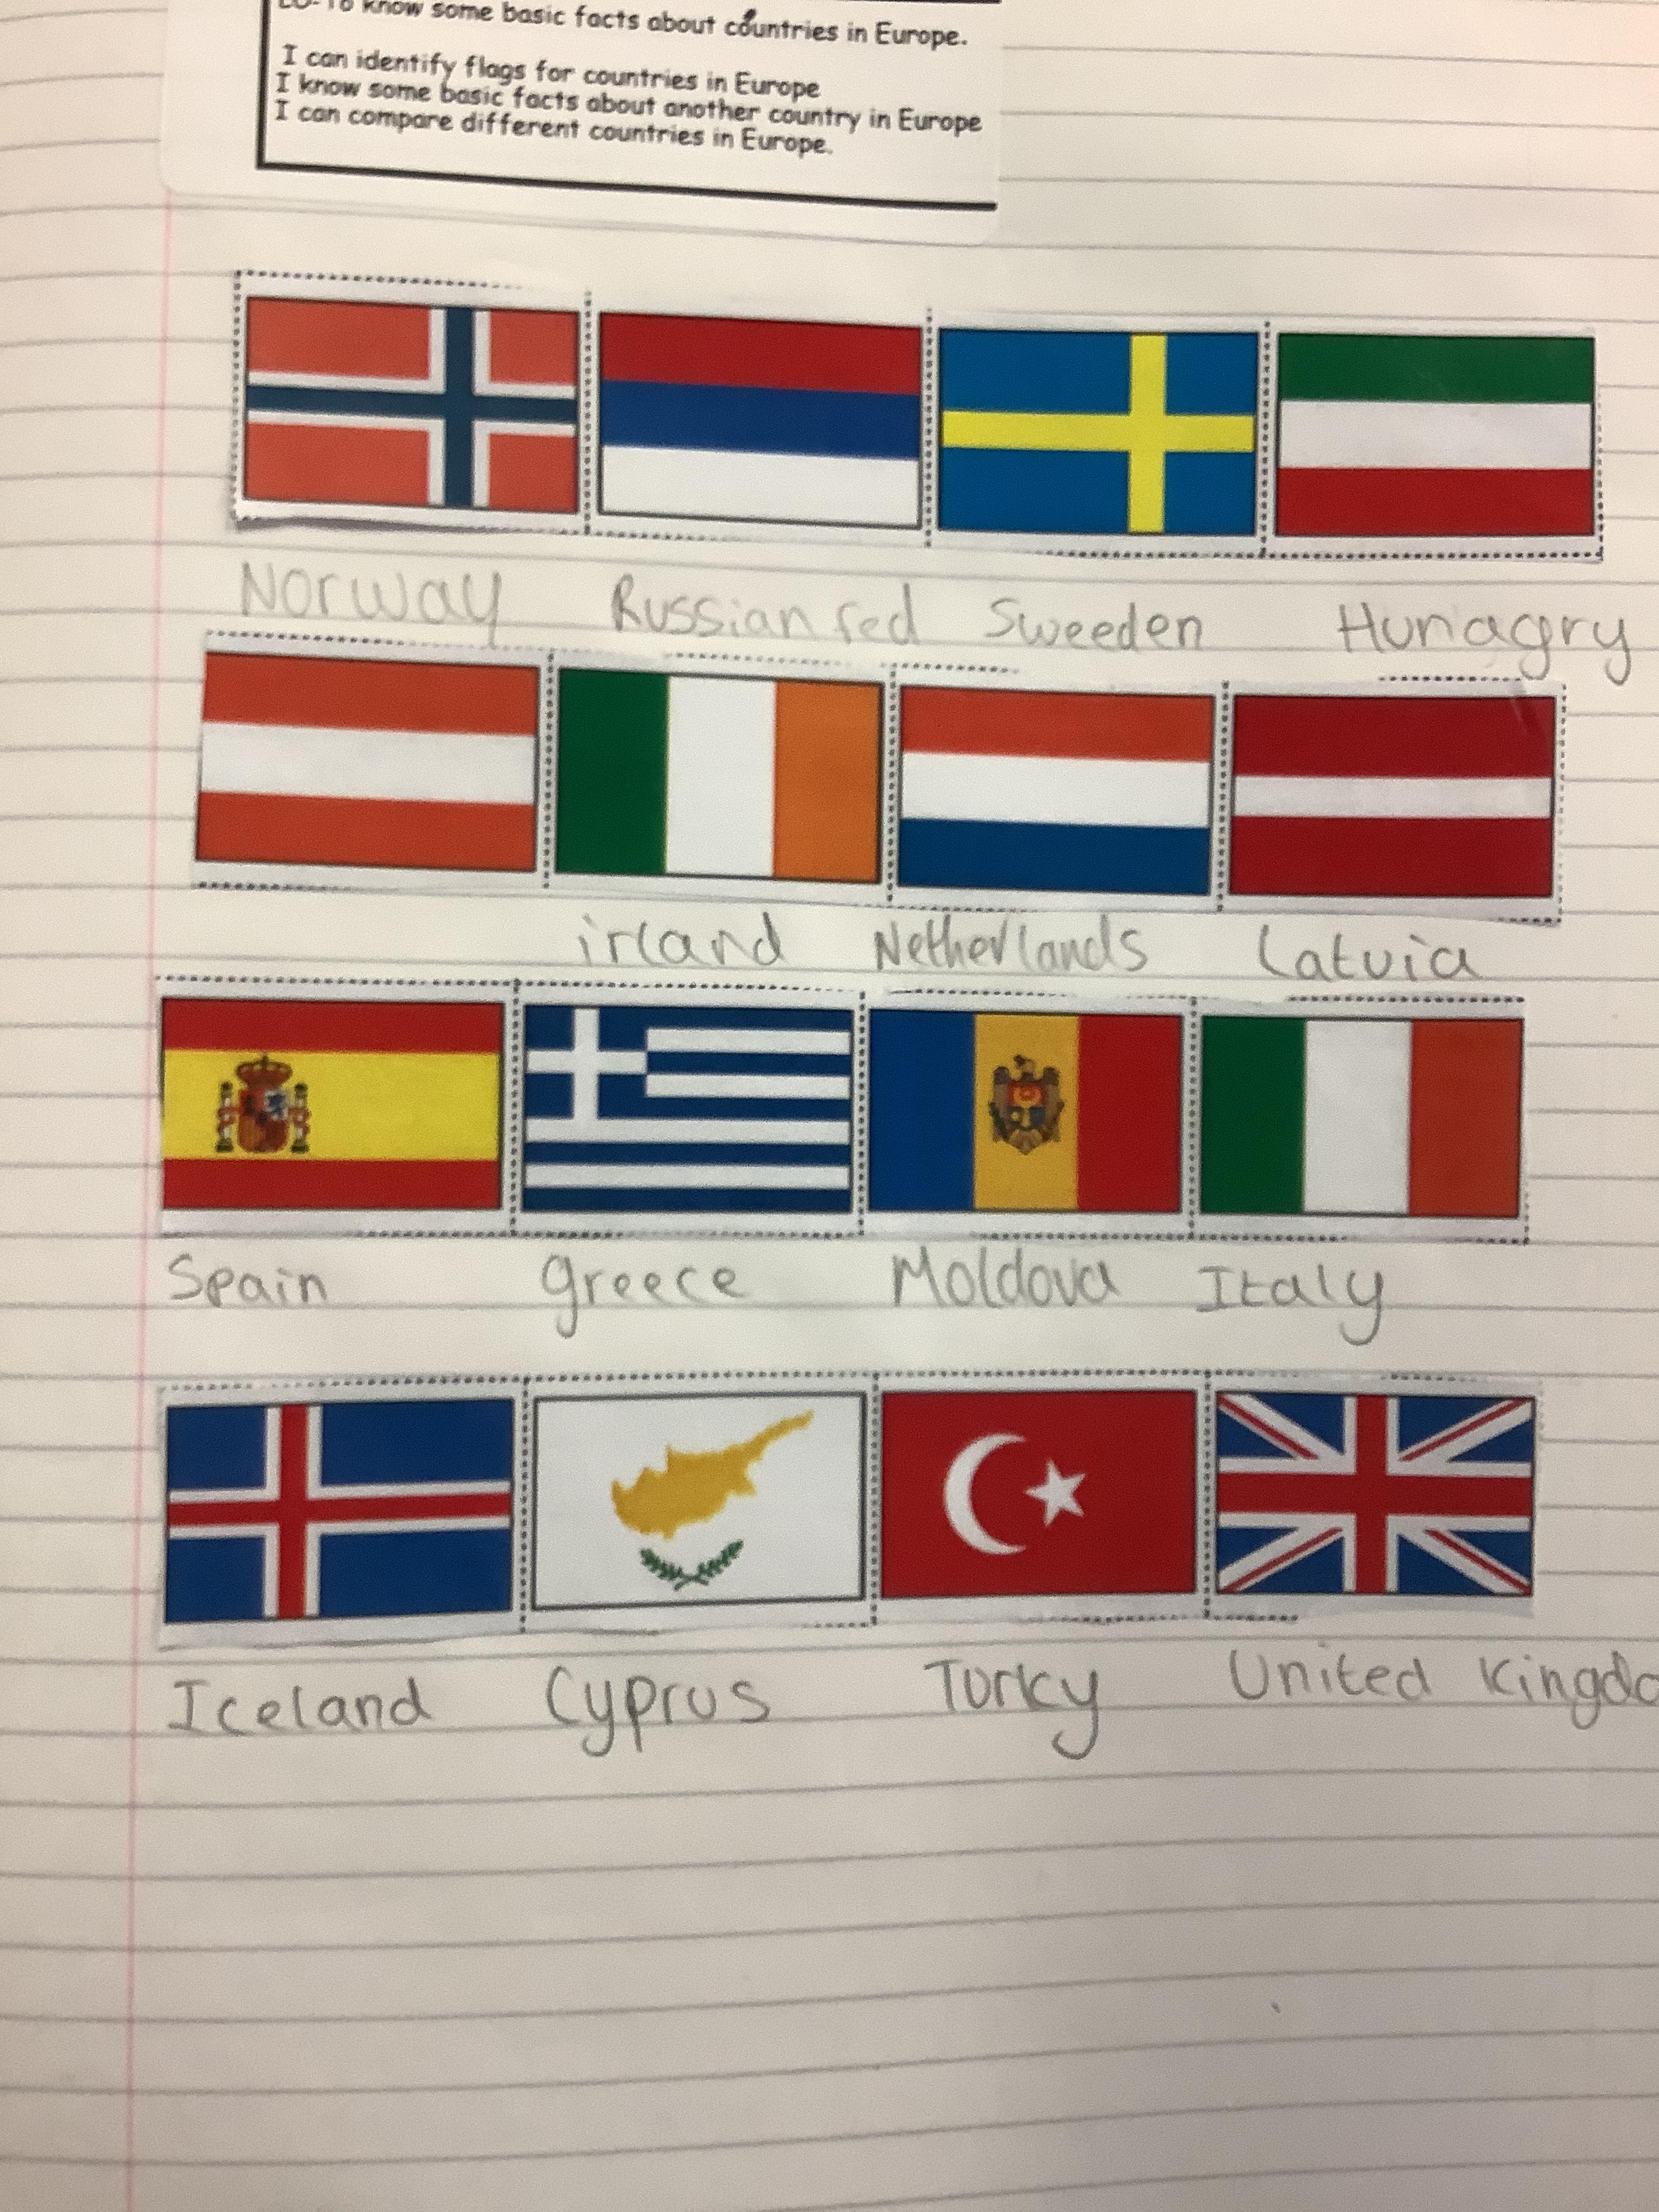 LO- To know some basic facts about countries in Europe.
I can identify flags for countries in Europe
I know some basic facts about another country in Europe
I can compare different countries in Europe.
Norway Russian fed Sweeden Hunagry
irland Netherlands Latvia
Spain Greece Moldova Italy
Iceland Cyprus Turky United Kingdo